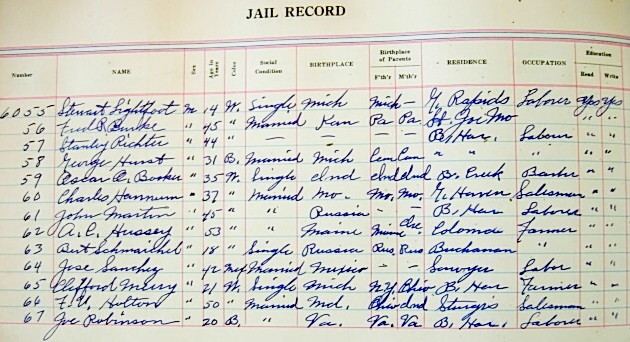 JAIL RECORD
Number NAME Sex Age in Years Color Social Condition BIRTHPLACE Birthplace of Parents F'th'r M'th'r RESIDENCE OCCUPATION Education Read Write
6055 Stewart Lightfoot m 14 W. Single Mich Mich – G. Rapids Laborer yes yes
56 Fred R. Burke " 45 " Married Kan Pa Pa St. Joe Mo " "
57 Stanley Richter " 44 " – – – – B. Har. Labour " "
58 George Hurst " 31 B. Married Mich " " " "
59 Oscar C. " 35 W. Single Ind Ind Ind B. Creek " "
60 Charles Hannum " 37 " Married Mo. Mo. Mo. G. Haven Salesman " "
61 John Martin " 45 " " Russia – – B. Har Laborer " "
62 A. C. Hussey " 53 " " Maine Maine Coloma Farmer " "
63 Burt " 18 " Single Russia Rus. Rus Buchanan " " "
64 Jose " 42 Mex Married Mexico – – Sawyer Labor " "
65 Clifford " 21 W. Single Mich N.Y. Ohio B. Har " "
66 Holton " 50 " Married Md. Ohio Ind Sturgis Salesman " "
67 Joe Robinson " 20 B. " Va. Va. Va B. Har. Laborer " "